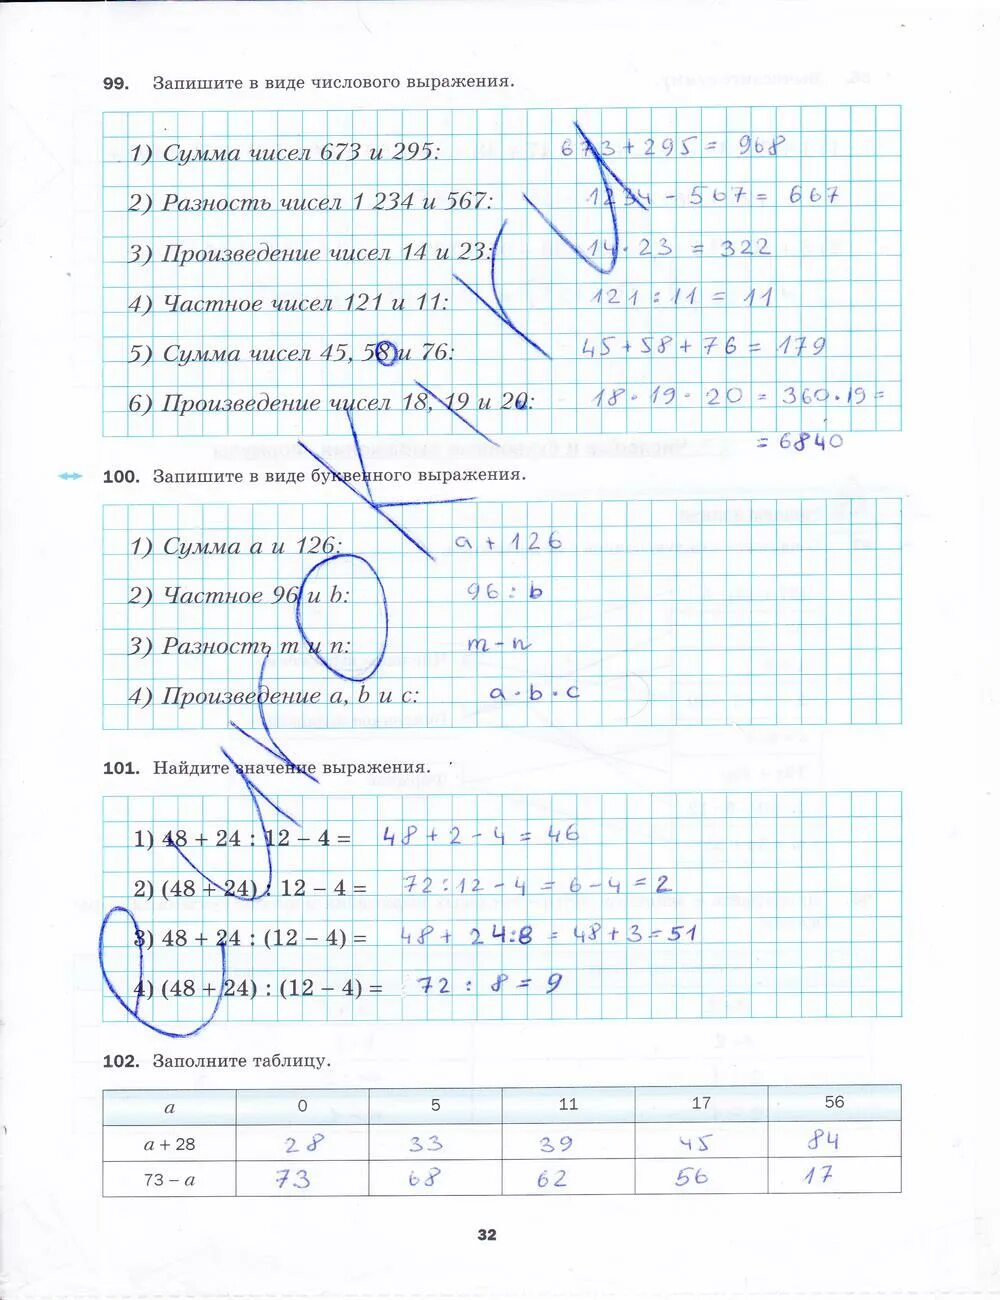 99. Запишите в виде числового выражения.
1) Сумма чисел 673 и 295: 673 + 295 = 968
2) Разность чисел 1 234 и 567: 1234 - 567 = 667
3) Произведение чисел 14 и 23: 14 · 23 = 322
4) Частное чисел 121 и 11: 121 : 11 = 11
5) Сумма чисел 45, 58 и 76: 45 + 58 + 76 = 179
6) Произведение чисел 18, 19 и 20: 18 · 19 · 20 = 360 · 19 =
= 6840
100. Запишите в виде буквенного выражения.
1) Сумма a и 126: a + 126
2) Частное 96 и b: 96 : b
3) Разность m и n: m - n
4) Произведение a, b и c: a · b · c
101. Найдите значение выражения.
1) 48 + 24 : 12 – 4 = 48 + 2 - 4 = 46
2) (48 + 24) : 12 – 4 = 72 : 12 - 4 = 6 - 4 = 2
3) 48 + 24 : (12 – 4) = 48 + 24:8 = 48 + 3 = 51
4) (48 + 24) : (12 – 4) = 72 : 8 = 9
102. Заполните таблицу.
a 0 5 11 17 56
a + 28 28 33 39 45 84
73 – a 73 68 62 56 17
32